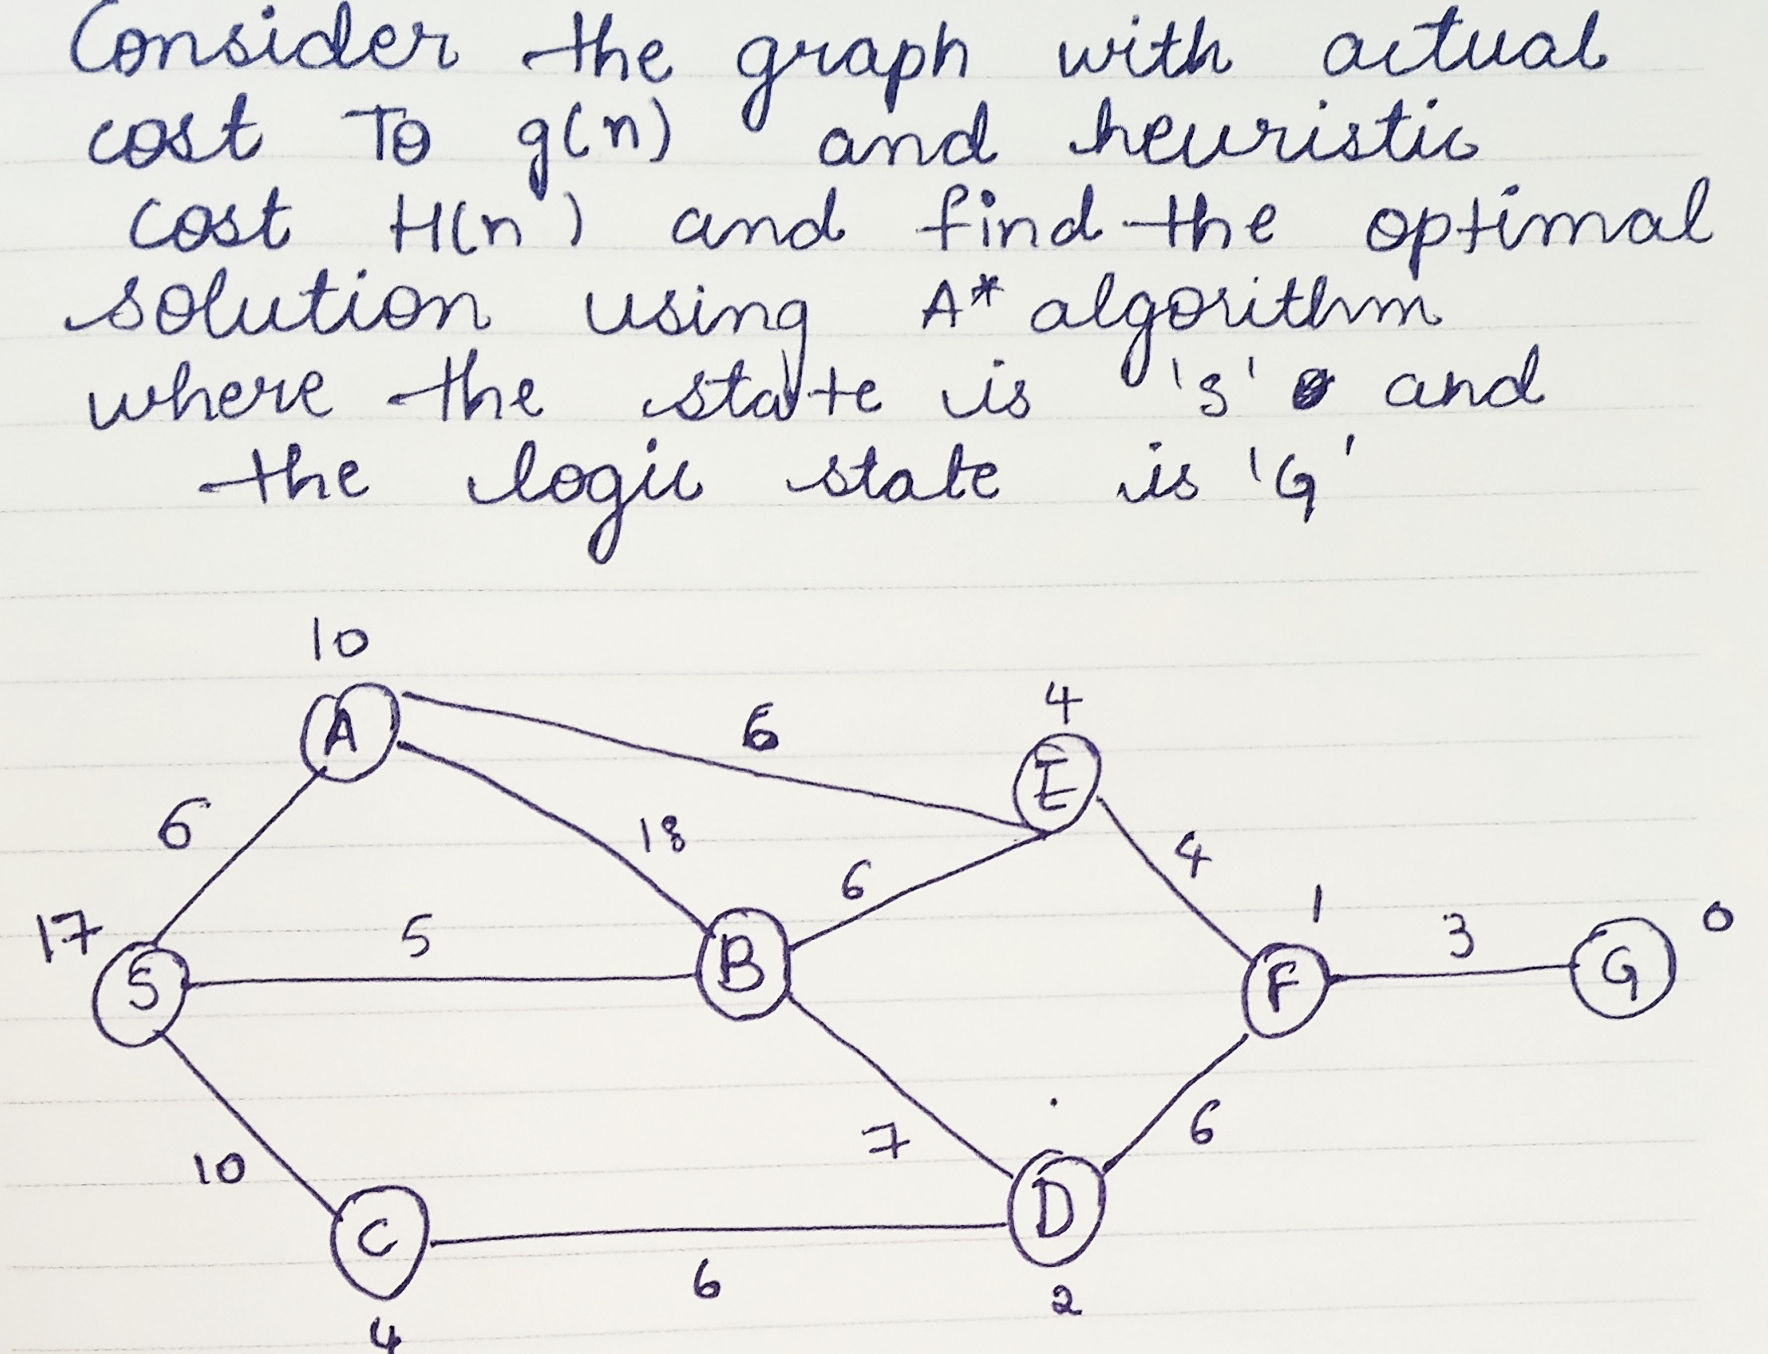 Consider the graph with actual
cost To g(n) and heuristic
cost H(n) and find the optimal
solution using A* algorithm
where the state is 'S' and
the logic state is 'G'
10
A
6
4
E
6
18
6
4
17
S
5
B
1
F
3
G
0
10
7
6
C
6
D
4
2